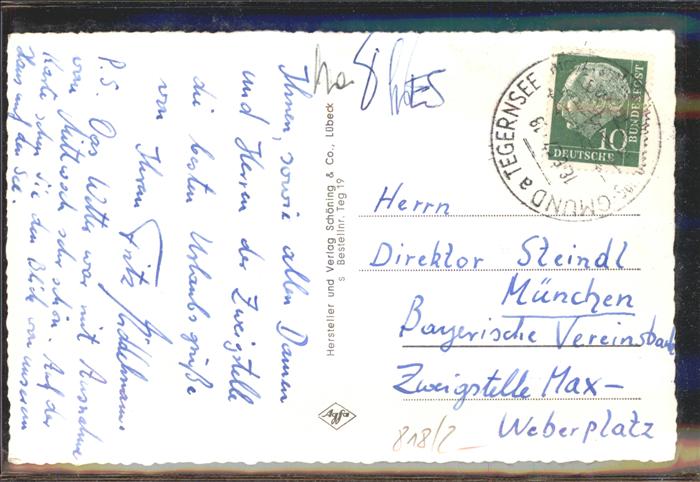 Ihnen, sowie allen Damen
und Herren der Zweigstelle
die besten Urlaubsgrüße
von Ihrem Fritz
P.S. Das Wetter war mit Ausnahme
vom Mittwoch sehr schön. Auf der
Karte sehen Sie den Blick von unserem
Haus auf den See.
Hersteller und Verlag Schöning & Co., Lübeck
s Bestellnr. Teg 19
Agfa
10
DEUTSCHE
BUNDESPOST
GMUND a TEGERNSEE
Herrn
Direktor Steindl
München
Bayerische Vereinsbank
Zweigstelle Max-
Weberplatz
818/2